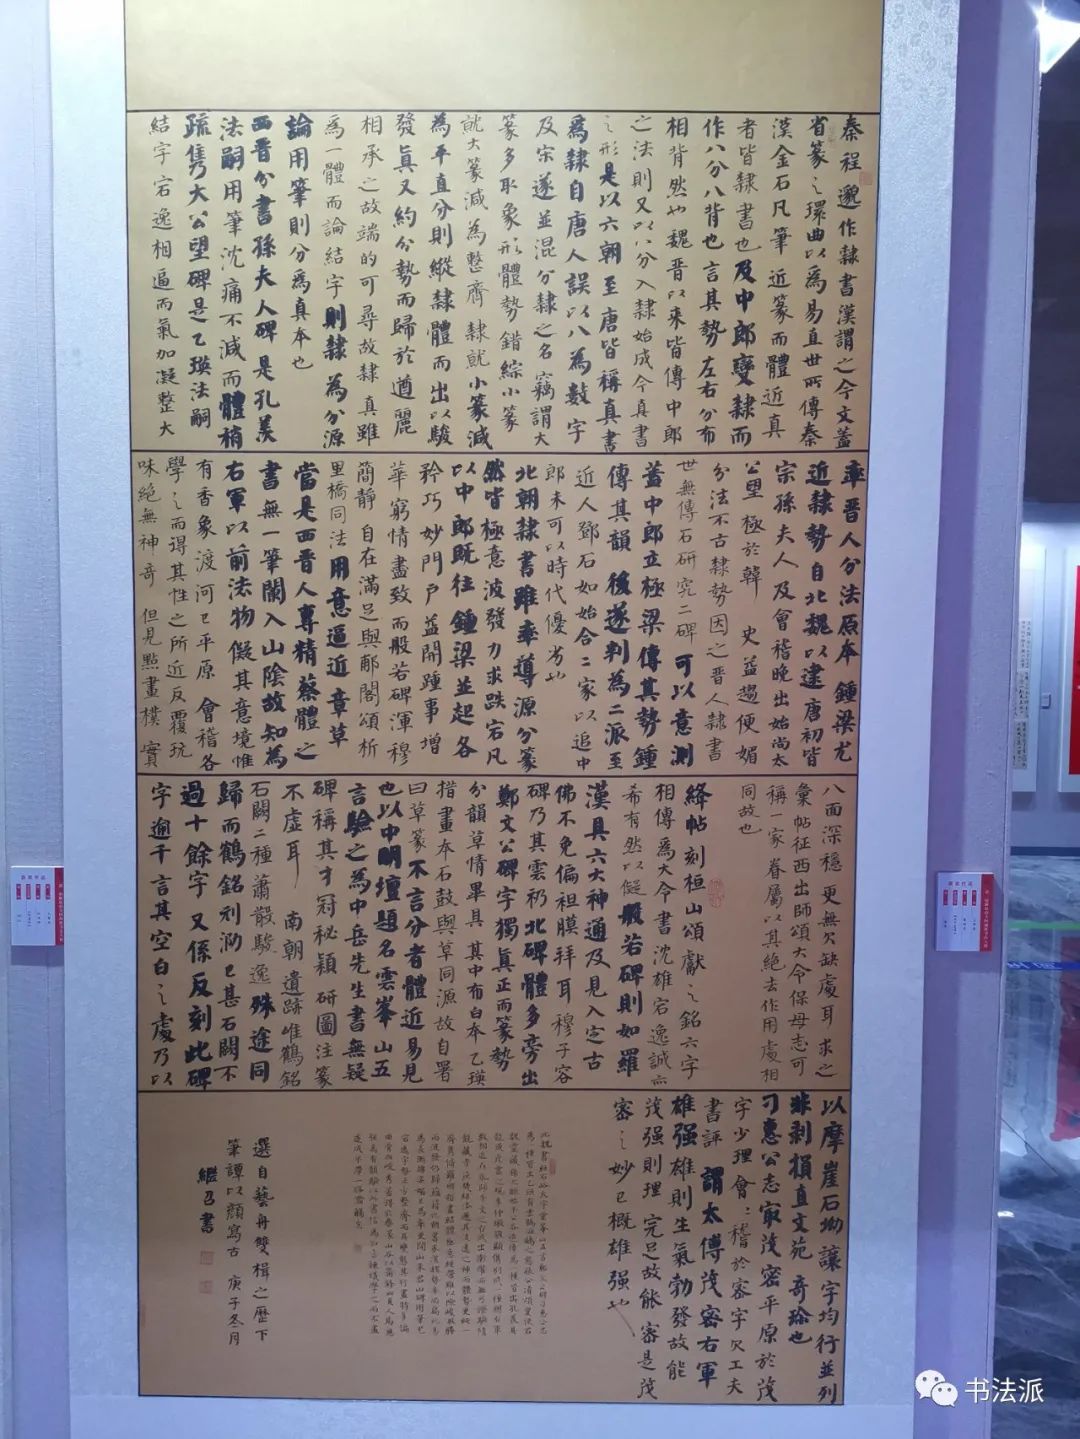 秦程邈作隸書漢謂之今文蓋
省篆之環曲以為易直世所傳秦
漢金石凡筆近篆而體近真
者皆隸書也及中郎變隸而
作八分八背也言其勢左右分布
相背然也魏晉以來皆傳中郎
之法則又以八分入隸始成今真書
之形是以六朝至唐皆稱真書
為隸自唐人誤以八為數字
及宋遂並混分隸之名竊謂大
篆多取象形體勢錯綜小篆
就大篆減為整齊隸就小篆減
為平直分則縱隸體而出以駿
發真又約分勢而歸於遒麗
相承之故端的可尋故隸真雖
為一體而論結字則隸為分源
論用筆則分為真本也
西晉分書孫夫人碑是孔羨
法嗣用筆沈痛不減而體稍
疏雋大公望碑是乙瑛法嗣
結字宕逸相逼而氣加凝整大
率晉人分法原本鍾梁尤
近隸勢自北魏以逮唐初皆
宗孫夫人及會稽晚出始尚太
公望極於韓史益趨便媚
分法不古隸勢因之晉人隸書
世無傳石研究二碑可以意測
蓋中郎立極梁傳其勢鍾
傳其韻後遂判為二派至
近人鄧石如始合二家以追中
郎未可以時代優劣也
北朝隸書雖率導源分篆
然皆極意波發力求跌宕凡
以中郎既往鍾梁並起各
矜巧妙門戶益開踵事增
華窮情盡致而般若碑渾穆
簡靜自在滿足與郙閣頌析
里橋同法用意逼近章草
當是西晉人專精蔡體之
書無一筆闌入山陰故知為
右軍以前法物儗其意境惟
有香象渡河已平原會稽各
學之而得其性之所近反覆玩
味絕無神奇但見點畫樸實
八面深穩更無欠缺處耳求之
彙帖征西出師頌大令保母志可
稱一家眷屬以其絕去作用處相
同故也
絳帖刻桓山頌獻之銘六字
相傳為大令書沈雄宕逸誠亦
希有然以儗般若碑則如羅
漢具六大神通及見入定古
佛不免偏袒膜拜耳穆子容
碑乃其雲礽北碑體多旁出
鄭文公碑字獨真正而篆勢
分韻草情畢具其中布白本乙瑛
措畫本石鼓與草同源故自署
曰草篆不言分者體近易見
也以中明壇題名雲峯山五
言驗之為中岳先生書無疑
碑稱其才冠秘穎研圖注篆
不虛耳南朝遺跡唯鶴銘
石闕二種蕭散駿逸殊途同
歸而鶴銘刓泐已甚石闕不
過十餘字又係反刻此碑
字逾千言其空白之處乃以
以摩崖石坳讓字均行並列
非剥損直文苑奇珍也
刁惠公志最茂密平原於茂
字少理會會稽於密字欠工夫
書評謂太傅茂密右軍
雄强雄則生氣勃發故能
茂强則理完足故能密是茂
密之妙已概雄强也
選自藝舟雙楫之歷下
筆譚以顏寫古庚子冬月
繼召書
书法派